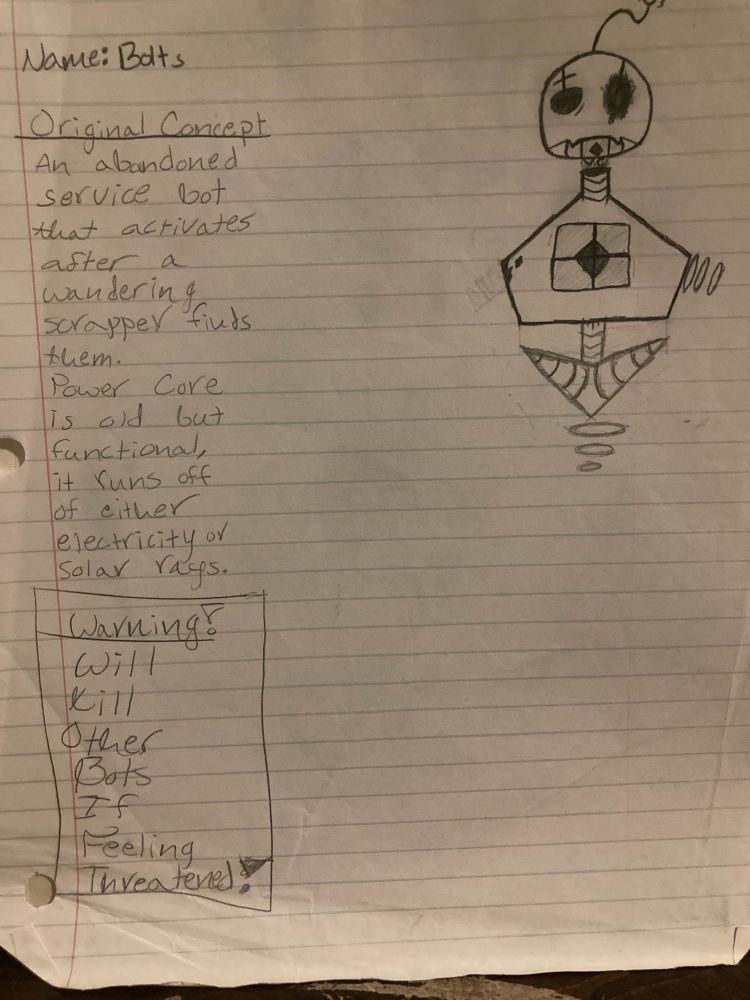 Name: Bolts
Original Concept
An abandoned
service bot
that activates
after a
wandering
scrapper finds
them.
Power Core
is old but
functional,
it runs off
of either
electricity or
solar rays.
Warning!
Will
Kill
Other
Bots
If
Feeling
Threatened!